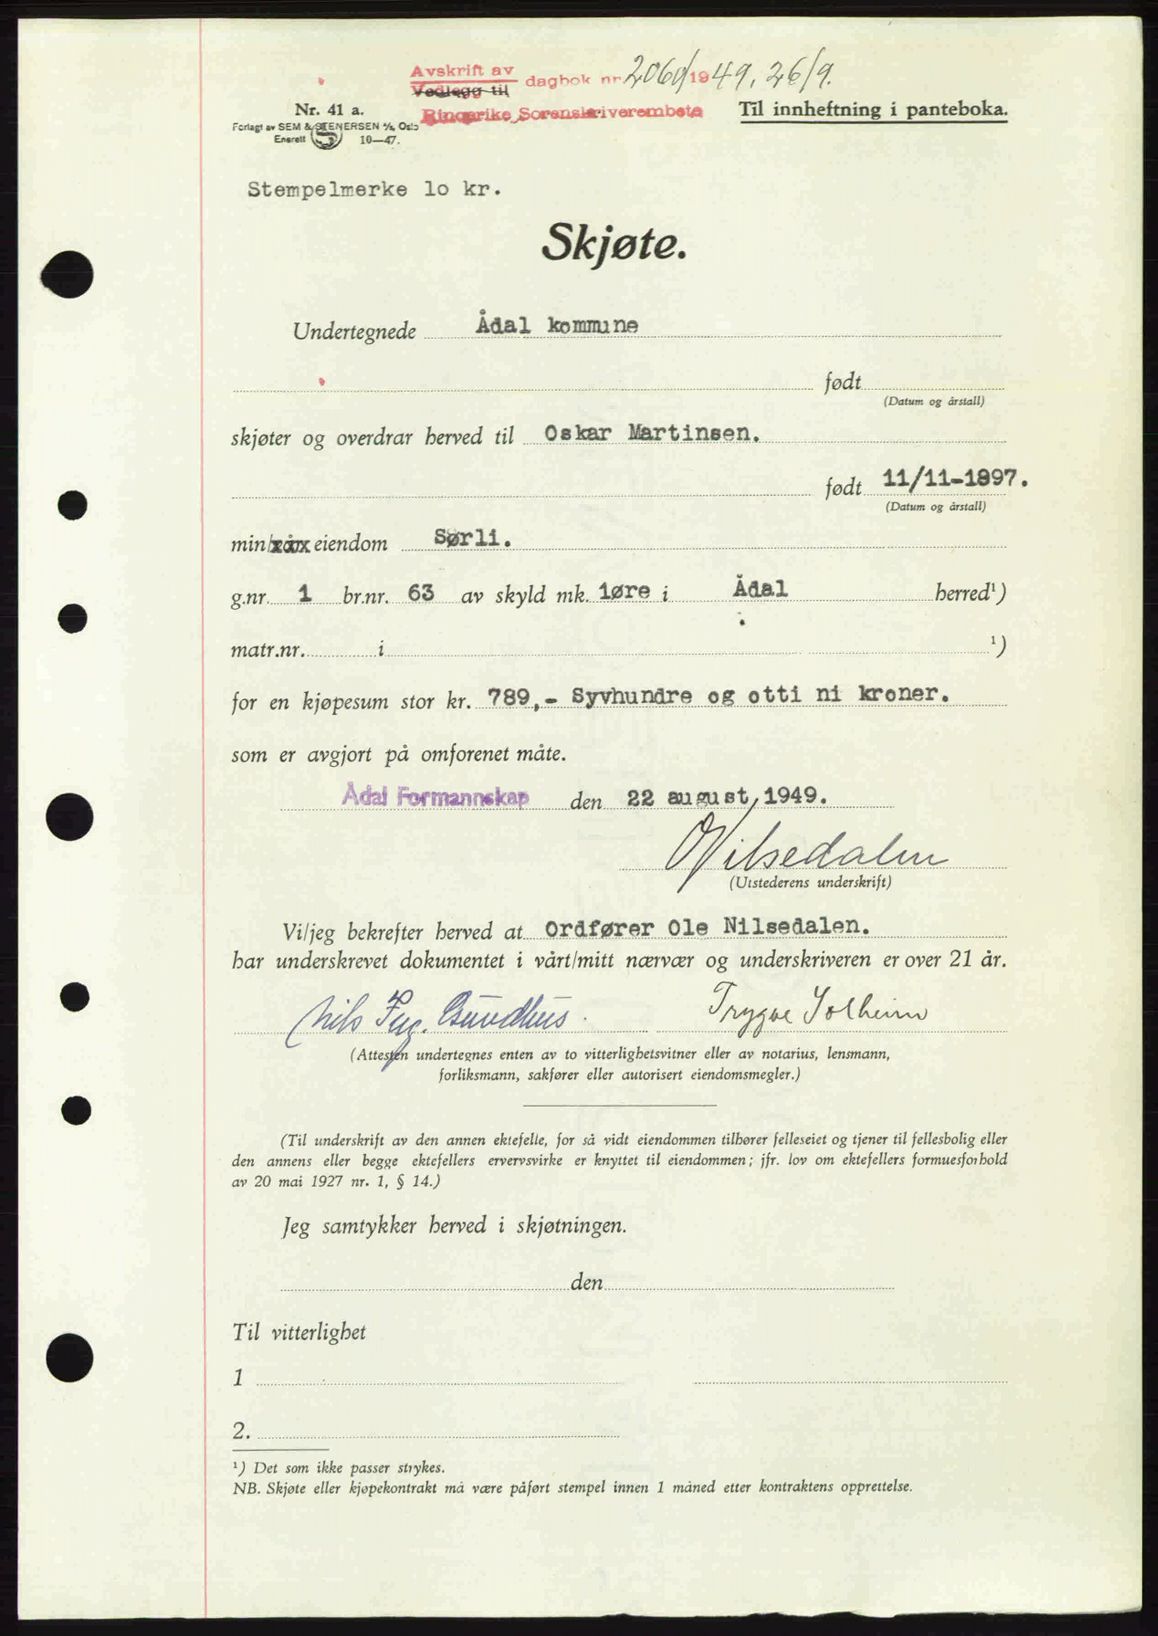 Avskrift av
Vedlegg til dagbok nr 2060/1949, 26/9.
Ringerike Sorenskriverembete
Til innheftning i panteboka.
Nr. 41 a.
Forlagt av SEM & STENERSEN A/s, Oslo
Enerett S 10—47.
Stempelmerke lo kr.
Skjøte.
Undertegnede Ådal kommune
født
(Datum og årstall)
skjøter og overdrar herved til Oskar Martinsen.
født 11/11-1897.
(Datum og årstall)
min/xåx eiendom Sørli.
g.nr. 1 br.nr. 63 av skyld mk. 1øre i Ådal herred¹)
matr.nr. i ¹)
for en kjøpesum stor kr. 789,- Syvhundre og otti ni kroner.
som er avgjort på omforenet måte.
Ådal Formannskap den 22 august 1949.
O Nilsedalen
(Utstederens underskrift)
Vi/jeg bekrefter herved at Ordfører Ole Nilsedalen.
har underskrevet dokumentet i vårt/mitt nærvær og underskriveren er over 21 år.
Nils Ing. Gundhus. Trygve Solheim
(Attesten undertegnes enten av to vitterlighetsvitner eller av notarius, lensmann,
forliksmann, sakfører eller autorisert eiendomsmegler.)
(Til underskrift av den annen ektefelle, for så vidt eiendommen tilhører felleseiet og tjener til fellesbolig eller
den annens eller begge ektefellers ervervsvirke er knyttet til eiendommen; jfr. lov om ektefellers formuesforhold
av 20 mai 1927 nr. 1, § 14.)
Jeg samtykker herved i skjøtningen.
den
Til vitterlighet
1
2.
¹) Det som ikke passer strykes.
NB. Skjøte eller kjøpekontrakt må være påført stempel innen 1 måned etter kontraktens opprettelse.